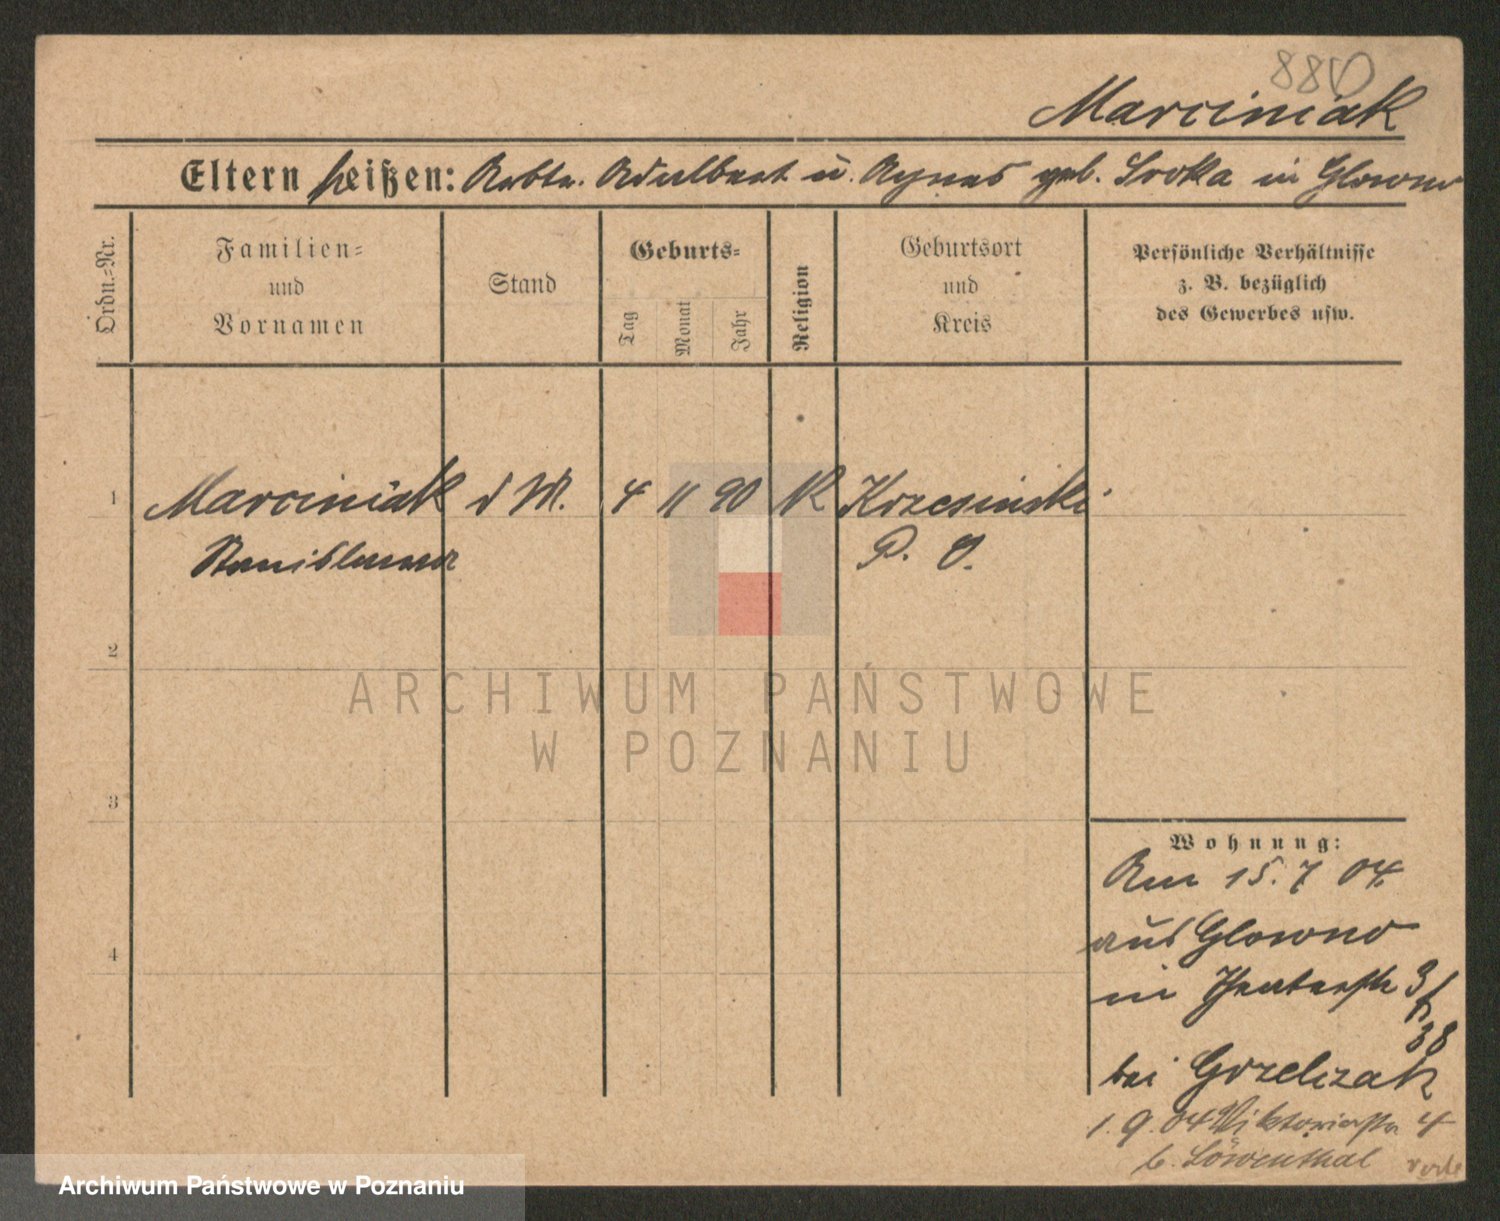 880
Marciniak
Eltern heißen: Arbtr. Adalbert u. Agnes geb. Sroka in Glowno
Ordn.=Nr.
Familien=
und
Vornamen
Stand
Geburts=
Tag
Monat
Jahr
Religion
Geburtsort
und
Kreis
Persönliche Verhältnisse
z. B. bezüglich
des Gewerbes usw.
1 Marciniak d M. 4 11 90 K Krzesinski
Stanislawa P. O.
2
ARCHIWUM PAŃSTWOWE
W POZNANIU
3
Wohnung:
Am 15. 7 04.
aus Glowno
in Theaterstr 3
38
bei Grzelczak
1. 9. 04 Viktoriastr 4
b. Löwenthal
4
Archiwum Państwowe w Poznaniu